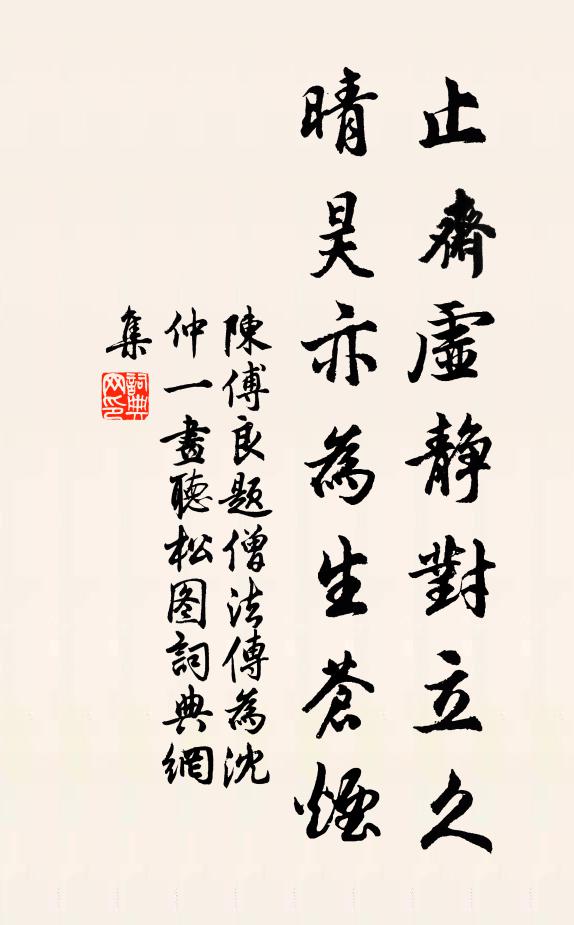 止齋虛靜對立久
晴昊亦為生蒼煙
陳傅良題僧法傳為沈
仲一畫聽松圖詞典網
集
詞典
网印